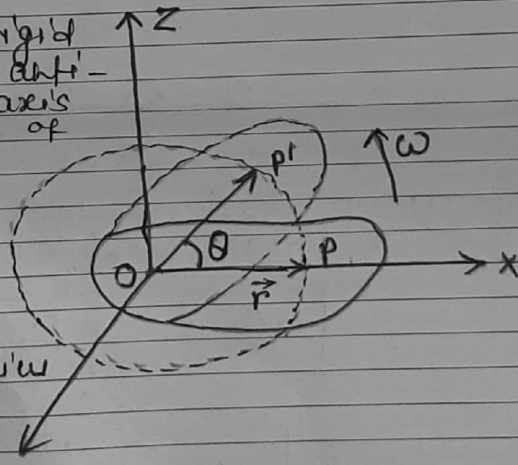 rigid
anti-
axis
of
Z
P'
ω
θ
O
P
X
r⃗